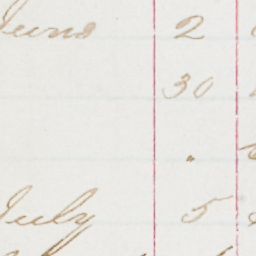 June 2
30
"
July 5